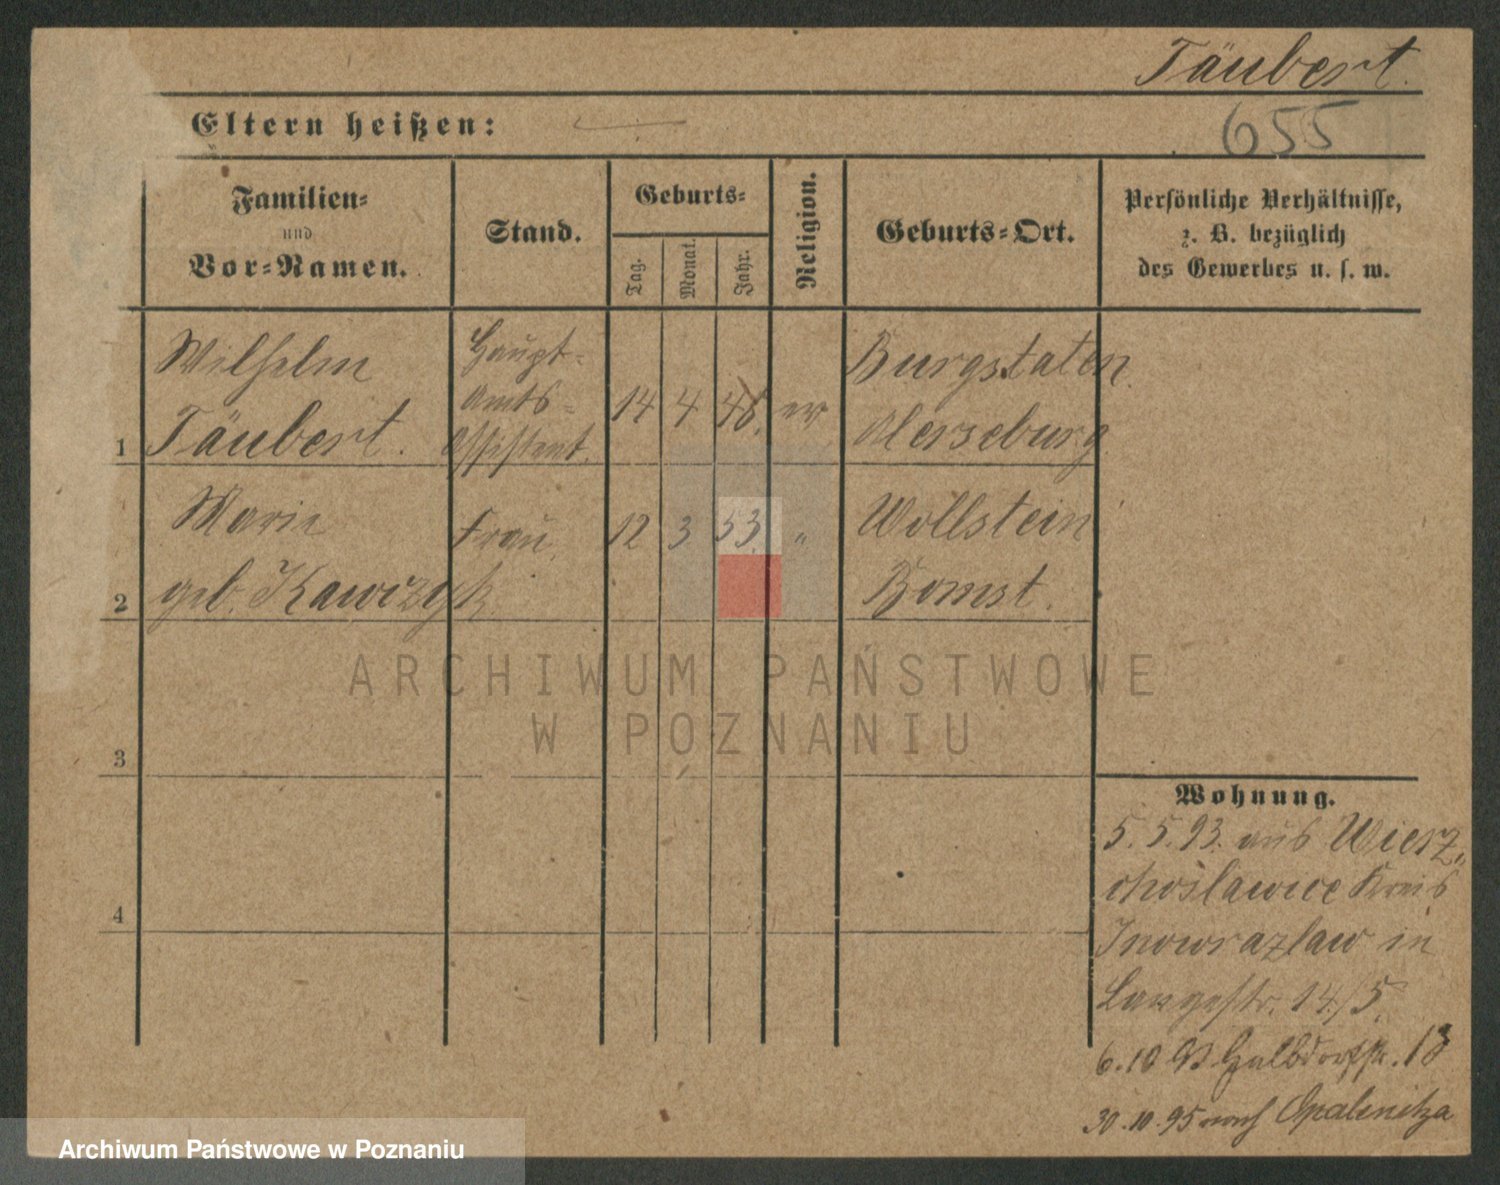 Täubert.
Eltern heißen:
655
Familien-
und
Vor-Namen.
Stand.
Geburts-
Tag.
Monat.
Jahr.
Religion.
Geburts-Ort.
Persönliche Verhältnisse,
z. B. bezüglich
des Gewerbes u. s. w.
1
Wilhelm
Täubert.
Haupt-
Amts-
Assistent.
14
4
48.
ev
Burgstaten
Merseburg
2
Marie
geb. Kawczyk
Frau
12
3
53.
"
Wollstein
Bomst.
3
4
Wohnung.
5.5.93. aus Wierz-
choslawice Kreis
Inowrazlaw in
Langestr. 14/5.
6.10 93 Halbdorfstr. 13
30.10.95 nach Opalenitza
ARCHIWUM PAŃSTWOWE
W POZNANIU
Archiwum Państwowe w Poznaniu